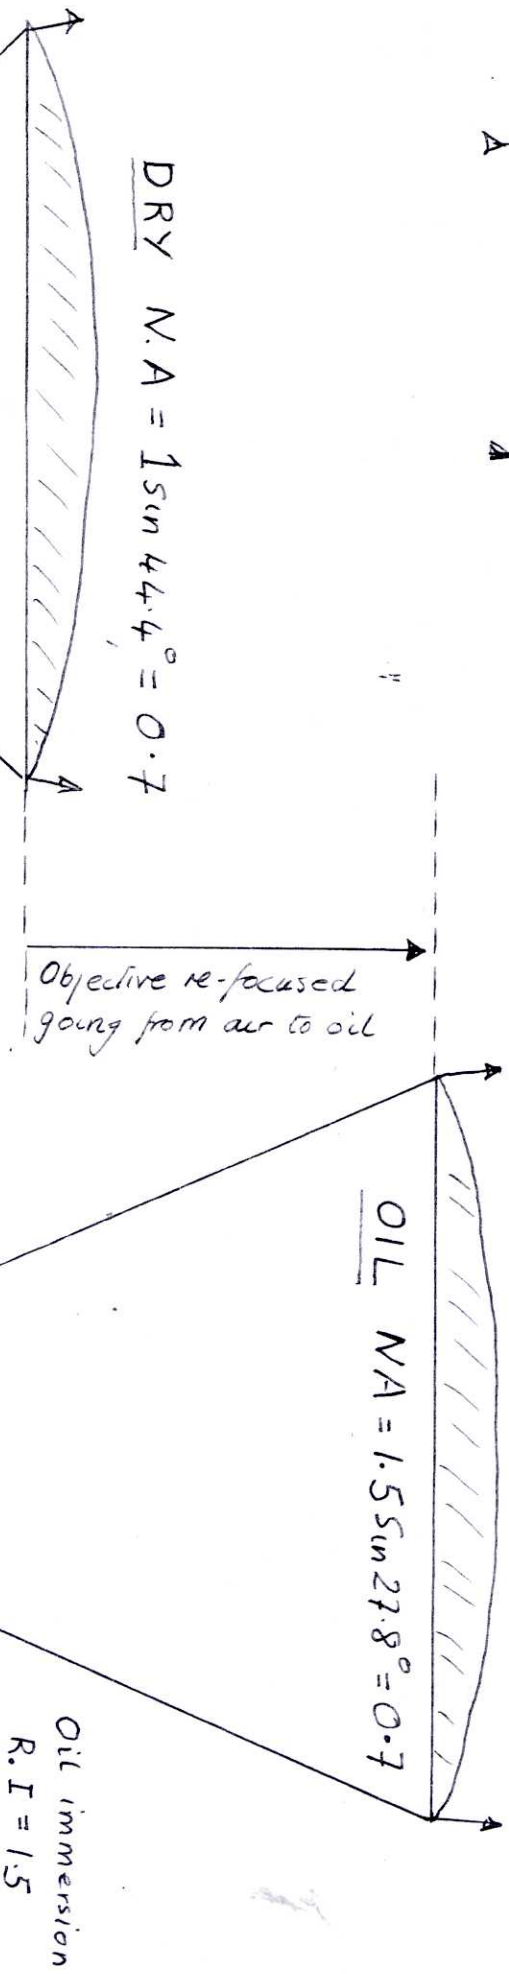 DRY N.A = 1 sin 44.4° = 0.7
Objective re-focused
going from air to oil
OIL NA = 1.5 Sin 27.8° = 0.7
Oil immersion
R.I = 1.5